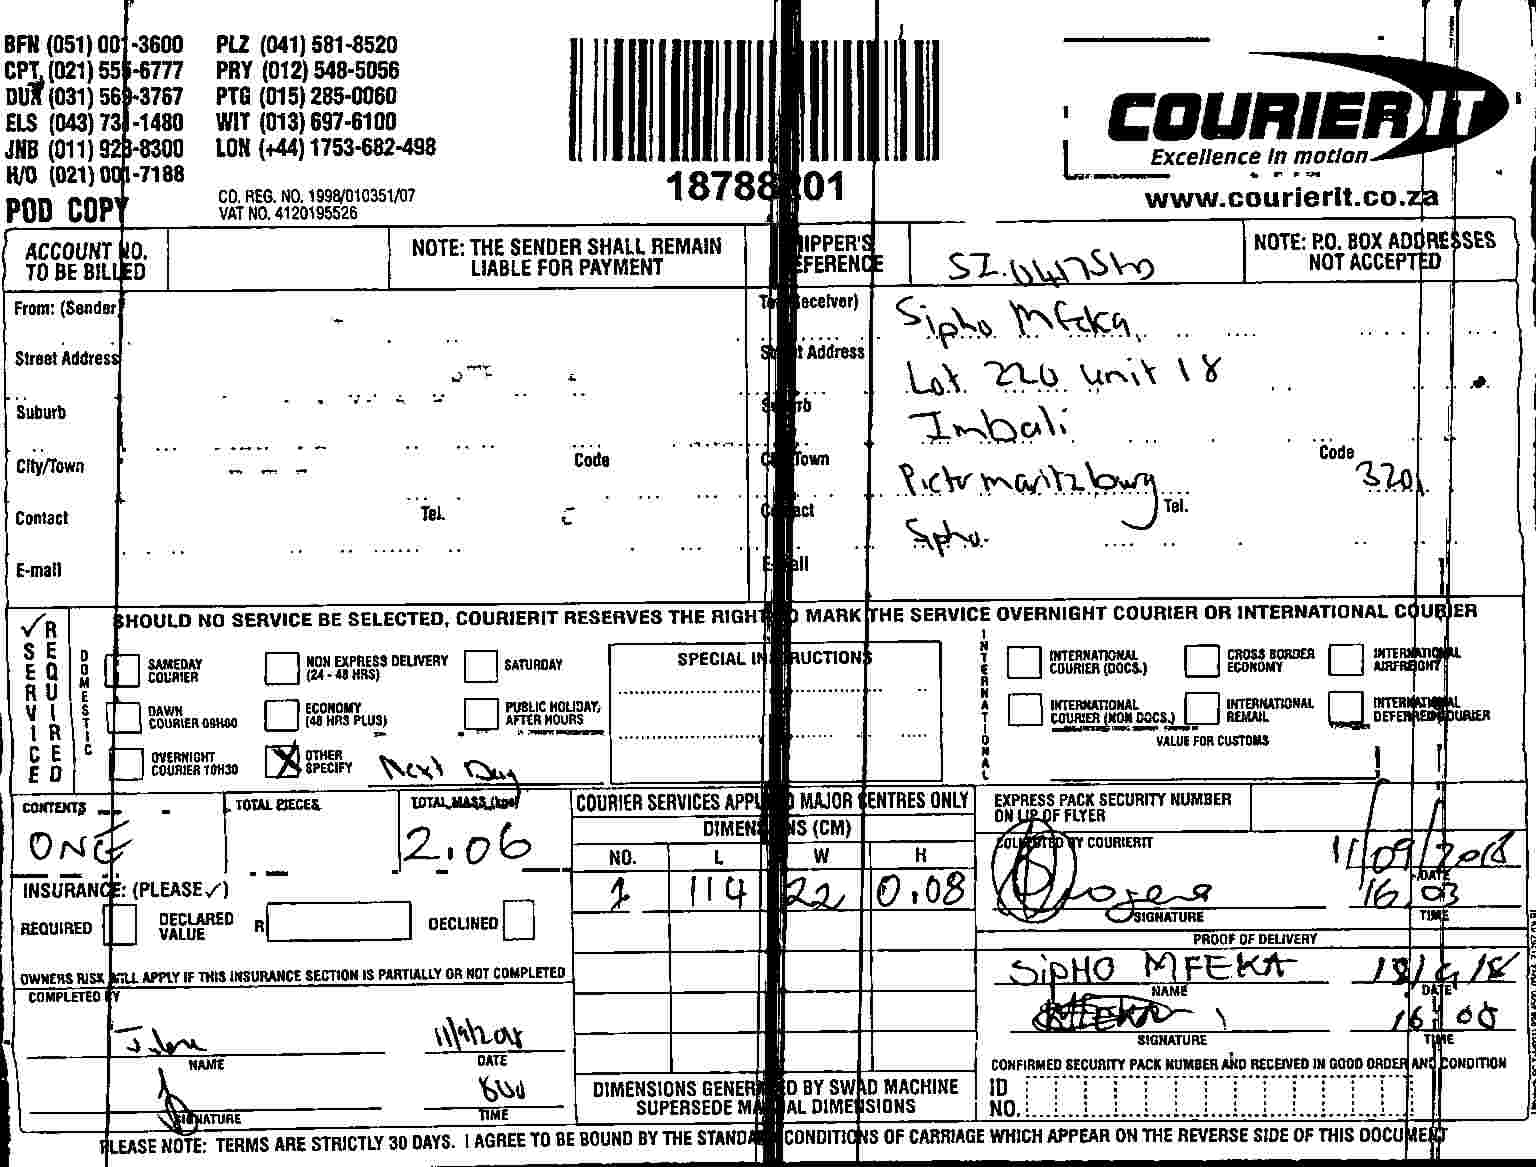 BFN (051) 001-3600 PLZ (041) 581-8520
CPT (021) 555-6777 PRY (012) 548-5056
DUR (031) 569-3767 PTG (015) 285-0060
ELS (043) 731-1480 WIT (013) 697-6100
JNB (011) 923-8300 LON (+44) 1753-682-498
H/O (021) 001-7188
POD COPY
CO. REG. NO. 1998/010351/07
VAT NO. 4120195526
COURIER IT
Excellence in motion
www.courierit.co.za
ACCOUNT NO. TO BE BILLED
NOTE: THE SENDER SHALL REMAIN LIABLE FOR PAYMENT
SHIPPER'S REFERENCE
NOTE: P.O. BOX ADDRESSES NOT ACCEPTED
From: (Sender)
Street Address
Suburb
City/Town Code
Contact Tel.
E-mail
To: (Receiver) Sipho Mfeka
Street Address Lot 220 unit 18
Suburb Imbali
City/Town Pietermaritzburg Code 3201
Contact Sipho Tel.
E-mail
SERVICE REQUIRED
SHOULD NO SERVICE BE SELECTED, COURIERIT RESERVES THE RIGHT TO MARK THE SERVICE OVERNIGHT COURIER OR INTERNATIONAL COURIER
DOMESTIC
SAMEDAY COURIER
NON EXPRESS DELIVERY (24 - 48 HRS)
SATURDAY
DAWN COURIER 09H00
ECONOMY (48 HRS PLUS)
PUBLIC HOLIDAY, AFTER HOURS
OVERNIGHT COURIER 10H30
OTHER SPECIFY Next Day
SPECIAL INSTRUCTIONS
INTERNATIONAL
INTERNATIONAL COURIER (DOCS.)
CROSS BORDER ECONOMY
INTERNATIONAL AIRFREIGHT
INTERNATIONAL COURIER (NON DOCS.)
INTERNATIONAL REMAIL
INTERNATIONAL DEFERRED COURIER
VALUE FOR CUSTOMS
CONTENTS ONE
TOTAL PIECES
TOTAL MASS (kgs) 2.06
INSURANCE: (PLEASE ✓)
REQUIRED DECLARED VALUE R DECLINED
OWNERS RISK WILL APPLY IF THIS INSURANCE SECTION IS PARTIALLY OR NOT COMPLETED
COMPLETED BY
NAME 11/9/2018 DATE
SIGNATURE TIME
COURIER SERVICES APPLY TO MAJOR CENTRES ONLY
DIMENSIONS (CM)
NO. L W H
1 114 22 0.08
DIMENSIONS GENERATED BY SWAD MACHINE SUPERSEDE MANUAL DIMENSIONS
EXPRESS PACK SECURITY NUMBER ON LIP OF FLYER
COLLECTED BY COURIERIT
11/09/2018 DATE
SIGNATURE 16.03 TIME
PROOF OF DELIVERY
SIPHO MFEKA
NAME DATE
MFEKA
SIGNATURE TIME
CONFIRMED SECURITY PACK NUMBER AND RECEIVED IN GOOD ORDER AND CONDITION
ID NO.
PLEASE NOTE: TERMS ARE STRICTLY 30 DAYS. I AGREE TO BE BOUND BY THE STANDARD CONDITIONS OF CARRIAGE WHICH APPEAR ON THE REVERSE SIDE OF THIS DOCUMENT